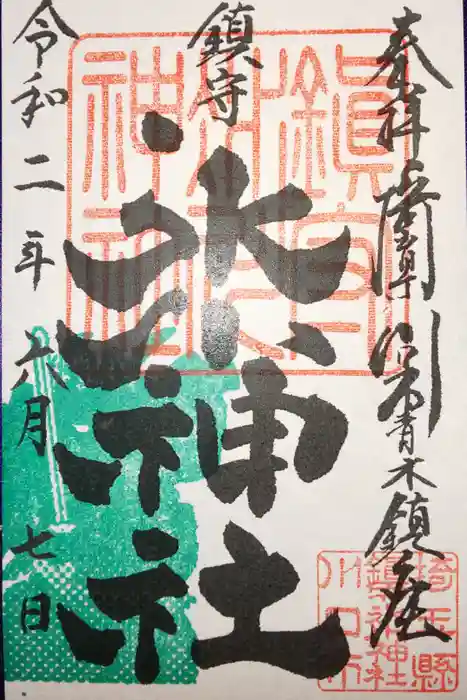 奉拝 青木鎮座
鎮守
氷川神社
令和二年六月七日
鎮守
氷川
神社
埼玉縣
鎮守氷川神社
川口市